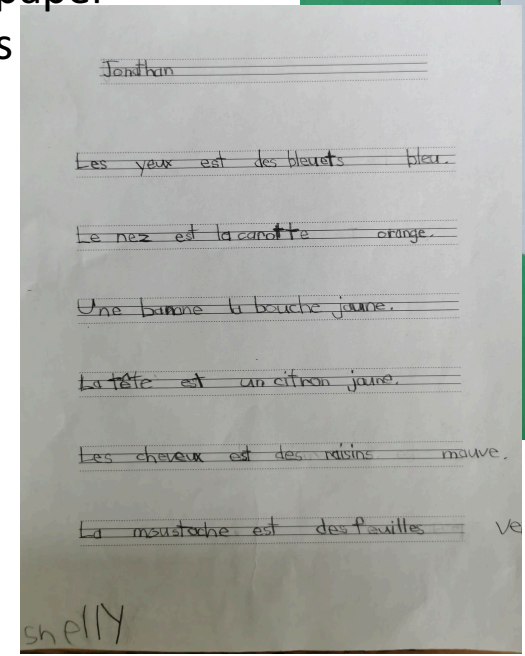 paper
s
Jonathan
Les yeux est des bleuets bleu.
Le nez est la carotte orange.
Une banane la bouche jaune.
La tête est un citron jaune.
Les cheveux est des raisins mauve.
La moustache est des feuilles ve
shelly